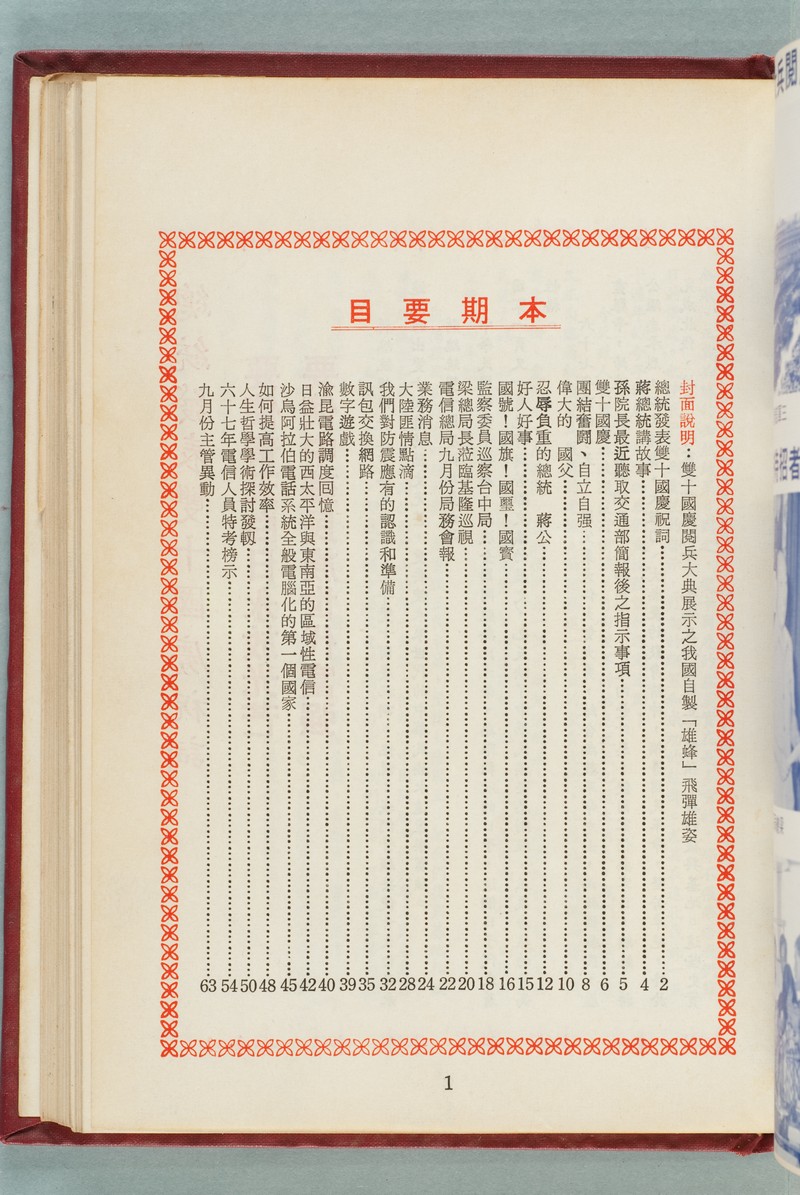 本期要目
封面說明：雙十國慶閱兵大典展示之我國自製「雄蜂」飛彈雄姿
總統發表雙十國慶祝詞……2
蔣總統講故事……4
孫院長最近聽取交通部簡報後之指示事項……5
雙十國慶……6
團結奮鬪、自立自强……8
偉大的　國父……10
忍辱負重的總統　蔣公……12
好人好事……15
國號！國旗！國璽！國賓……16
監察委員巡察台中局……18
梁總局長蒞臨基隆巡視……20
電信總局九月份局務會報……22
業務消息……24
大陸匪情點滴……28
我們對防震應有的認識和準備……32
訊包交換網路……35
數字遊戲……39
渝昆電路調度囘憶……40
日益壯大的西太平洋與東南亞的區域性電信……42
沙烏阿拉伯電話系統全般電腦化的第一個國家……45
如何提高工作效率……48
人生哲學學術探討發軔……50
六十七年電信人員特考榜示……54
九月份主管異動……63
1
閱兵
者招